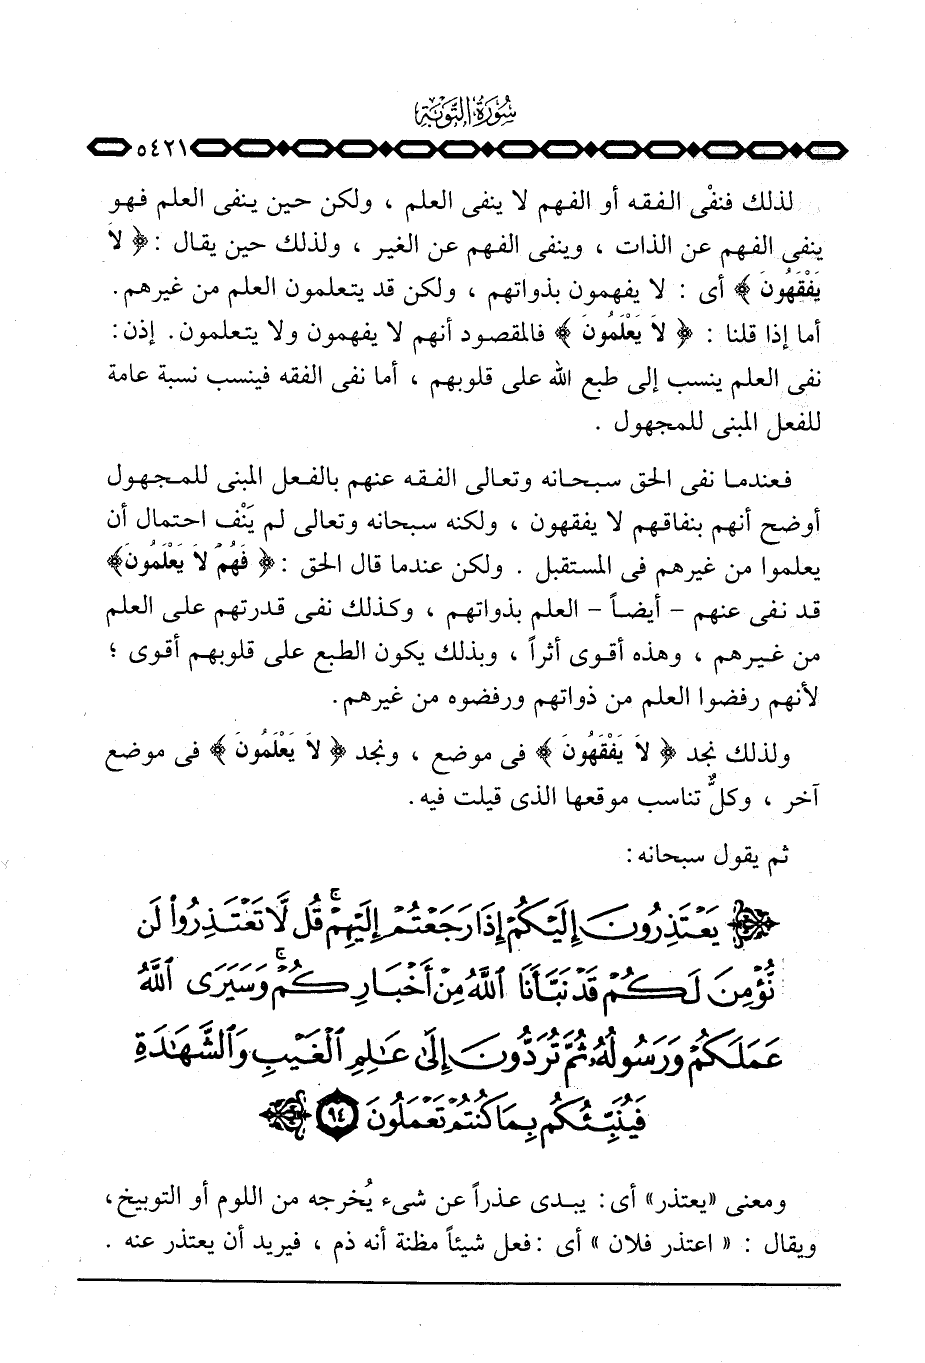 سُورَةُ التَّوْبَةِ
٥٤٢١
لذلك فنفْى الفقه أو الفهم لا ينفى العلم ، ولكن حين ينفى العلم فهو
ينفى الفهم عن الذات ، وينفى الفهم عن الغير ، ولذلك حين يقال : ﴿ لاَ
يَفْقَهُونَ ﴾ أى : لا يفهمون بذواتهم ، ولكن قد يتعلمون العلم من غيرهم .
أما إذا قلنا : ﴿ لاَ يَعْلَمُونَ ﴾ فالمقصود أنهم لا يفهمون ولا يتعلمون . إذن :
نفى العلم ينسب إلى طبع الله على قلوبهم ، أما نفى الفقه فينسب نسبة عامة
للفعل المبنى للمجهول .
فعندما نفى الحق سبحانه وتعالى الفقه عنهم بالفعل المبنى للمجهول
أوضح أنهم بنفاقهم لا يفقهون ، ولكنه سبحانه وتعالى لم يَنْف احتمال أن
يعلموا من غيرهم فى المستقبل . ولكن عندما قال الحق : ﴿ فَهُمْ لاَ يَعْلَمُونَ﴾
قد نفى عنهم – أيضاً – العلم بذواتهم ، وكذلك نفى قدرتهم على العلم
من غيرهم ، وهذه أقوى أثراً ، وبذلك يكون الطبع على قلوبهم أقوى ؛
لأنهم رفضوا العلم من ذواتهم ورفضوه من غيرهم .
ولذلك نجد ﴿ لاَ يَفْقَهُونَ ﴾ فى موضع ، ونجد ﴿ لاَ يَعْلَمُونَ ﴾ فى موضع
آخر ، وكلٌّ تناسب موقعها الذى قيلت فيه .
ثم يقول سبحانه :
يَعْتَذِرُونَ إِلَيْكُمْ إِذَا رَجَعْتُمْ إِلَيْهِمْ ۚ قُل لَّا تَعْتَذِرُوا۟ لَن
نُّؤْمِنَ لَكُمْ قَدْ نَبَّأَنَا ٱللَّهُ مِنْ أَخْبَارِكُمْ ۚ وَسَيَرَى ٱللَّهُ
عَمَلَكُمْ وَرَسُولُهُۥ ثُمَّ تُرَدُّونَ إِلَىٰ عَـٰلِمِ ٱلْغَيْبِ وَٱلشَّهَـٰدَةِ
فَيُنَبِّئُكُم بِمَا كُنتُمْ تَعْمَلُونَ ٩٤
ومعنى «يعتذر» أى : يبدى عذراً عن شىء يُخرجه من اللوم أو التوبيخ ،
ويقال : « اعتذر فلان » أى : فعل شيئاً مظنة أنه ذم ، فيريد أن يعتذر عنه .